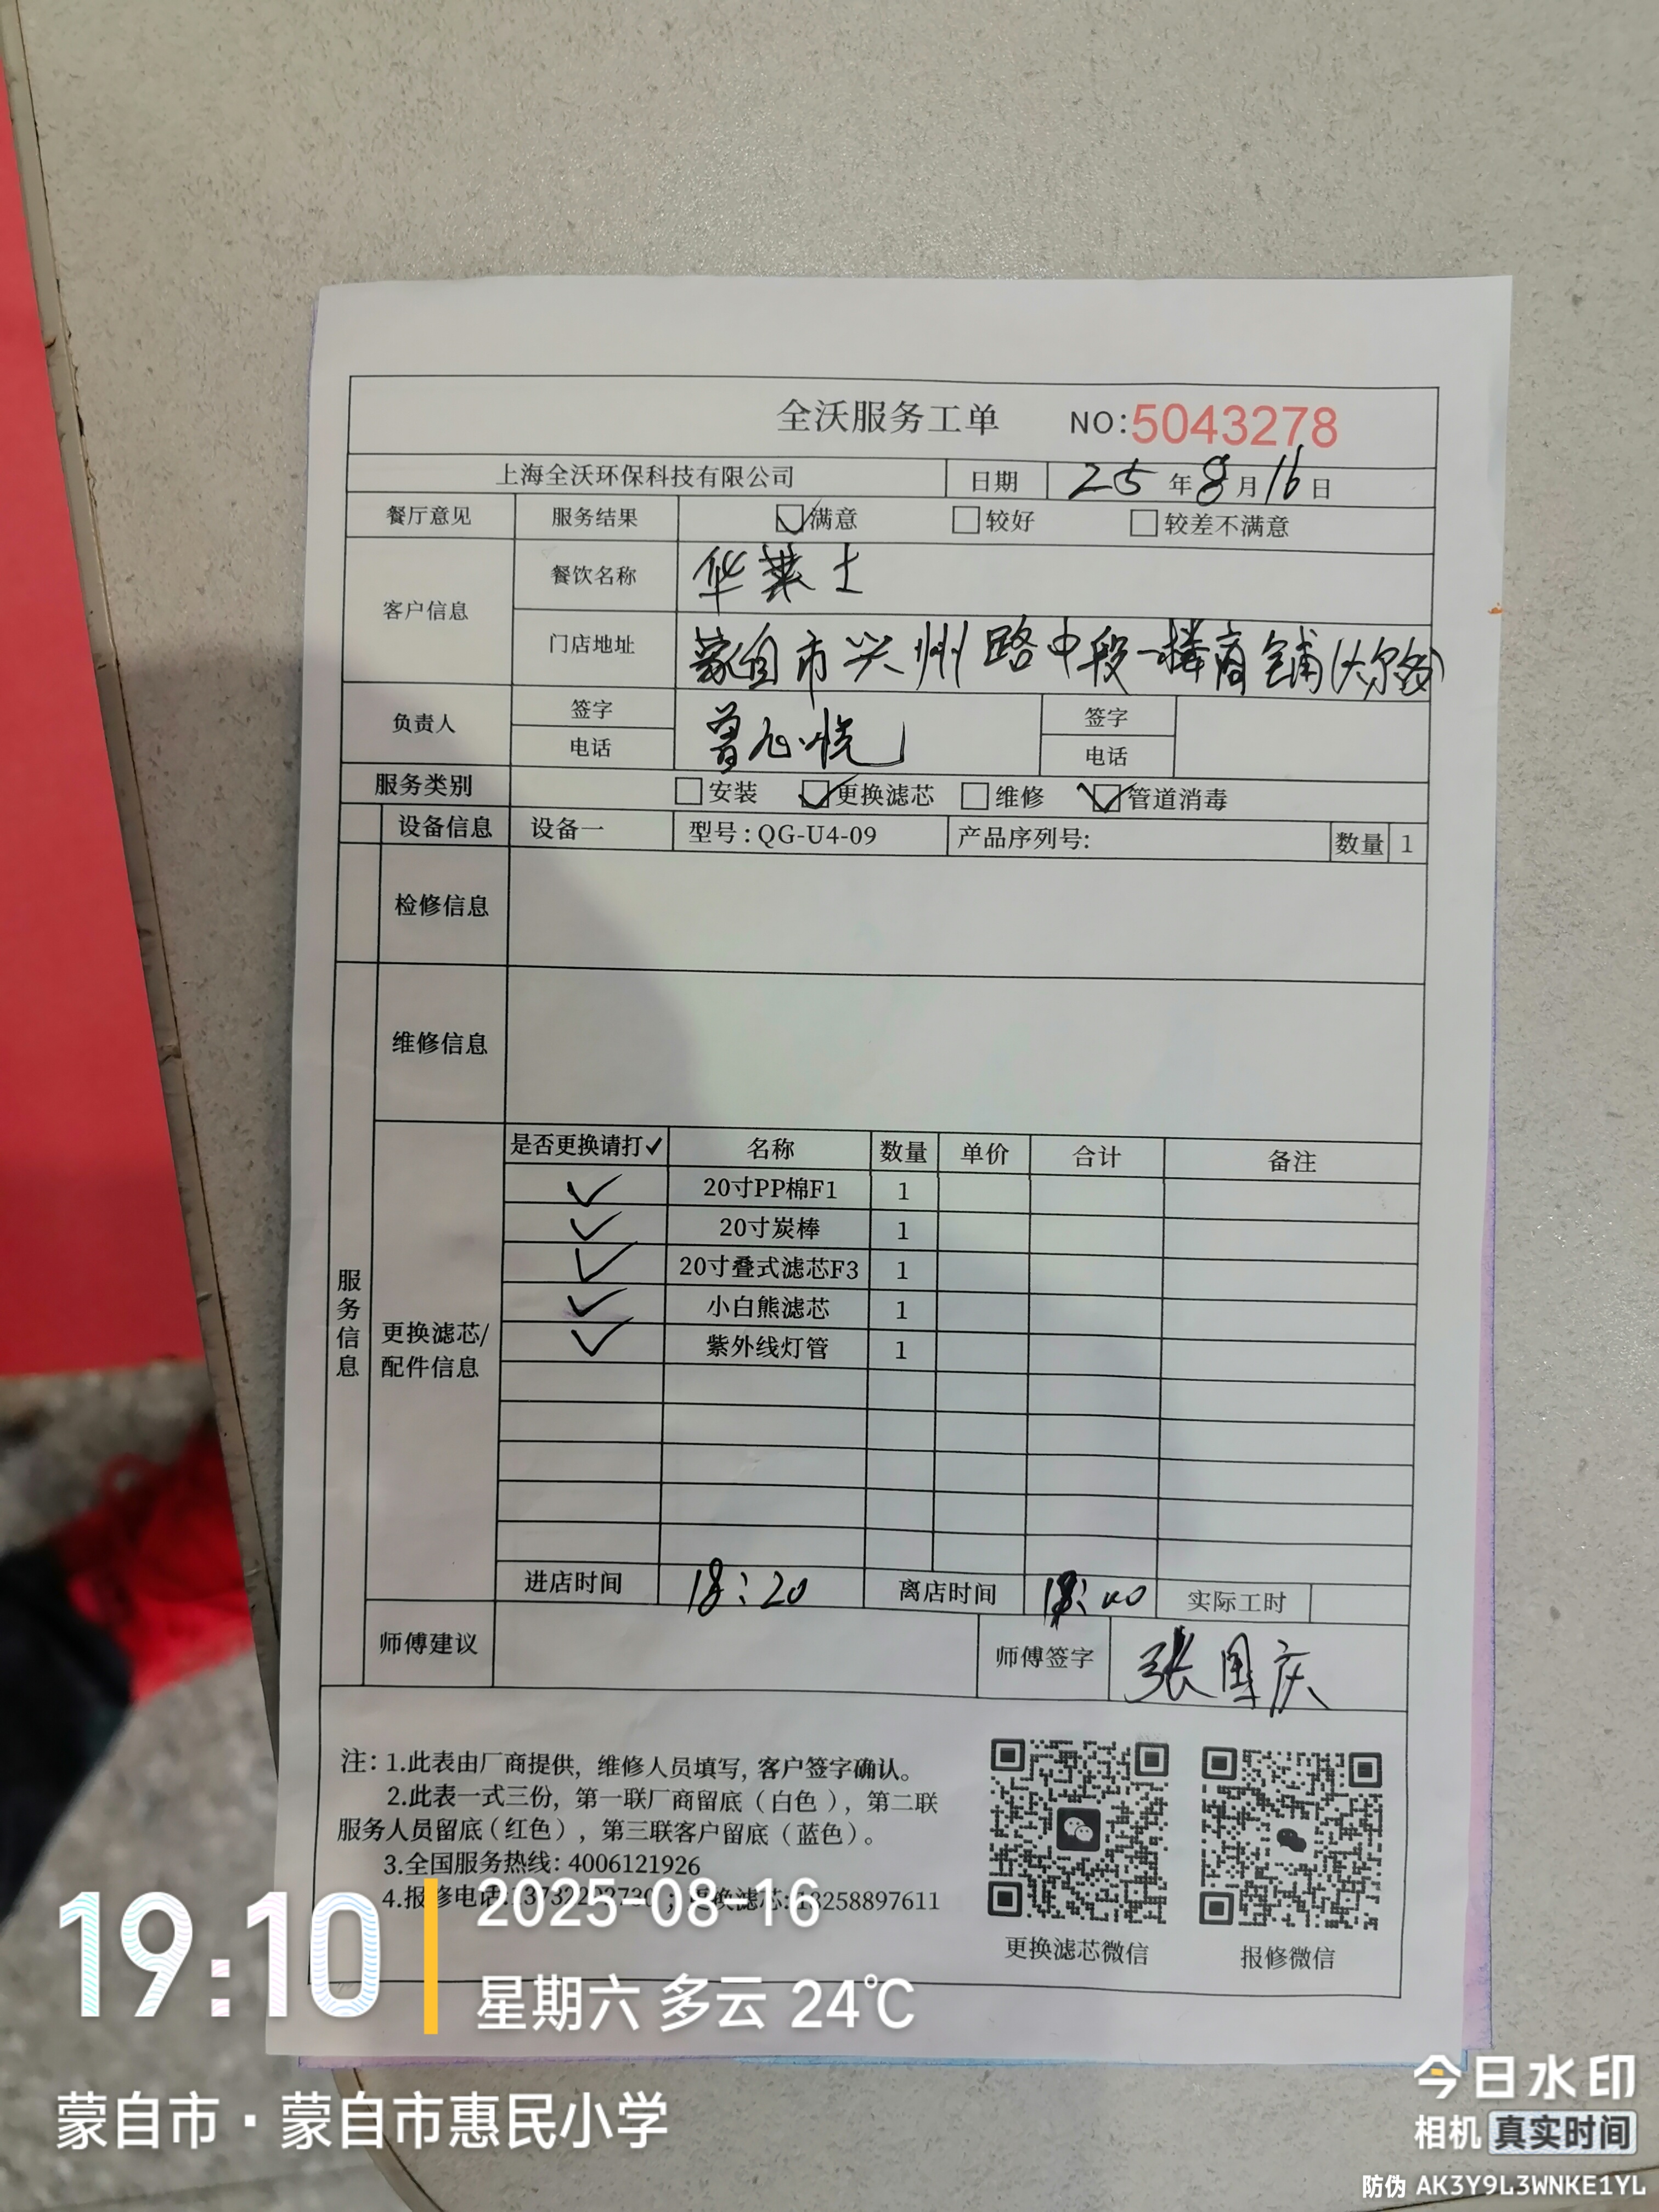 全沃服务工单 NO:5043278
上海全沃环保科技有限公司 日期 25年8月16日
餐厅意见 服务结果 满意 较好 较差不满意
客户信息 餐饮名称 华莱士
门店地址 蒙自市兴州路中段一楼商铺(大尔多)
负责人 签字 曾 悦 签字
电话 电话
服务类别 安装 更换滤芯 维修 管道消毒
设备信息 设备一 型号:QG-U4-09 产品序列号: 数量 1
检修信息
维修信息
服务信息
更换滤芯/
配件信息
是否更换请打✓ 名称 数量 单价 合计 备注
✓ 20寸PP棉F1 1
✓ 20寸炭棒 1
✓ 20寸叠式滤芯F3 1
✓ 小白熊滤芯 1
✓ 紫外线灯管 1
进店时间 18:20 离店时间 实际工时
师傅建议 师傅签字 张国庆
注:1.此表由厂商提供，维修人员填写，客户签字确认。
2.此表一式三份，第一联厂商留底（白色），第二联
服务人员留底（红色），第三联客户留底（蓝色）。
3.全国服务热线:4006121926
4.报修电话: 更换滤芯:18258897611
更换滤芯微信 报修微信
19:10
2025-08-16
星期六 多云 24℃
蒙自市·蒙自市惠民小学
今日水印
相机 真实时间
防伪 AK3Y9L3WNKE1YL